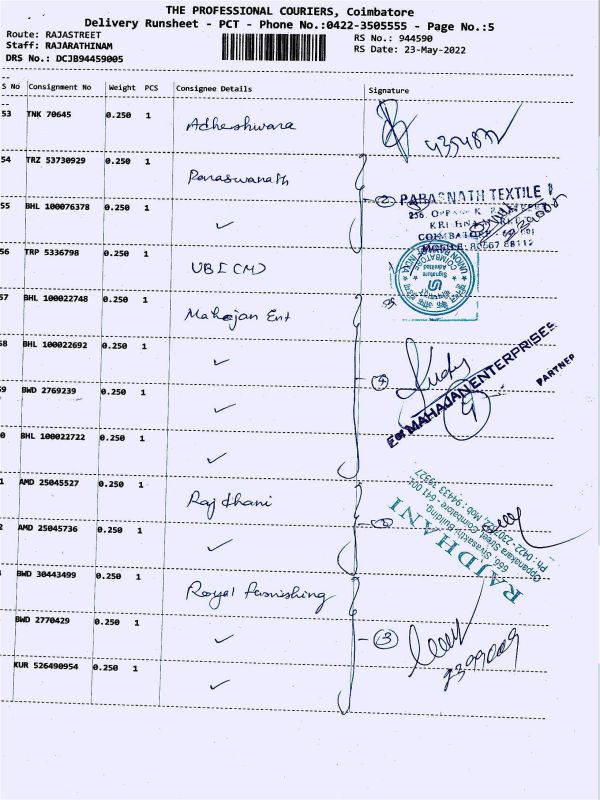 THE PROFESSIONAL COURIERS, Coimbatore
Delivery Runsheet - PCT - Phone No.:0422-3505555 - Page No.:5
Route: RAJASTREET
RS No.: 944590
Staff: RAJARATHINAM
RS Date: 23-May-2022
DRS No.: DCJB94459005
S No Consignment No Weight PCS Consignee Details Signature
53 TNK 70645 0.250 1 Adheshwara
54 TRZ 53730929 0.250 1 Paraswanath
55 BHL 100076378 0.250 1 ✓
2 PARASNATH TEXTILE
COIMBATORE
56 TRP 5336798 0.250 1 UBI (M)
UNION BANK OF INDIA
COIMBATORE
Signature
Admitted
57 BHL 100022748 0.250 1 Mahajan Ent
58 BHL 100022692 0.250 1 ✓
9 BWD 2769239 0.250 1 ✓
4
For MAHAJAN ENTERPRISES
PARTNER
0 BHL 100022722 0.250 1 ✓
1 AMD 25045527 0.250 1 Rajdhani
2 AMD 25045736 0.250 1 ✓
RAJDHANI
666, Sivasakthi Building,
Oppanakara Street, Coimbatore - 641 001.
BWD 30443499 0.250 1 Royal furnishing
BWD 2770429 0.250 1 ✓
3
KUR 526490954 0.250 1 ✓